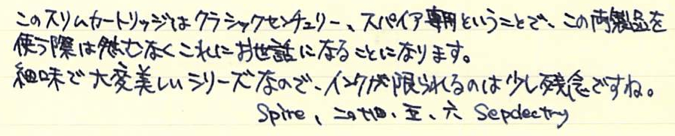 このスリムカートリッジはクラシックセンチュリー、スパイア専用ということで、この両製品を
使う際は除くなくこれにお世話になることになります。
細味で大変美しいシリーズなので、インクが限られるのは少し残念ですね。
Spire、二〇